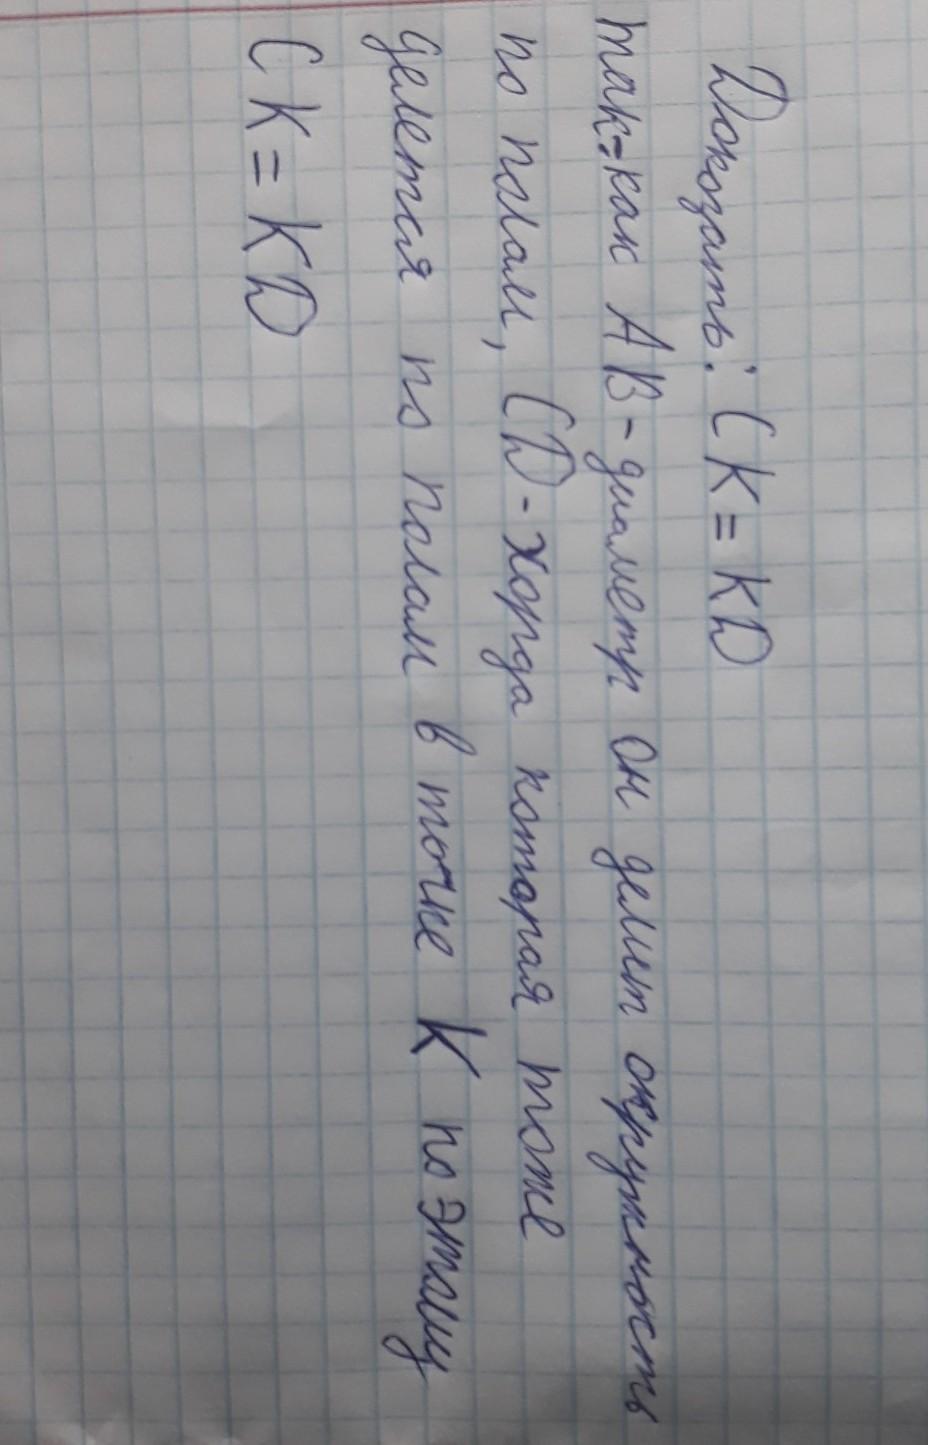 Докозать: CK = KD
так-как AB - диаметр он делит окружность
по полам, CD - хорда которая тоже
делется по полам в точке K по этому
CK = KD